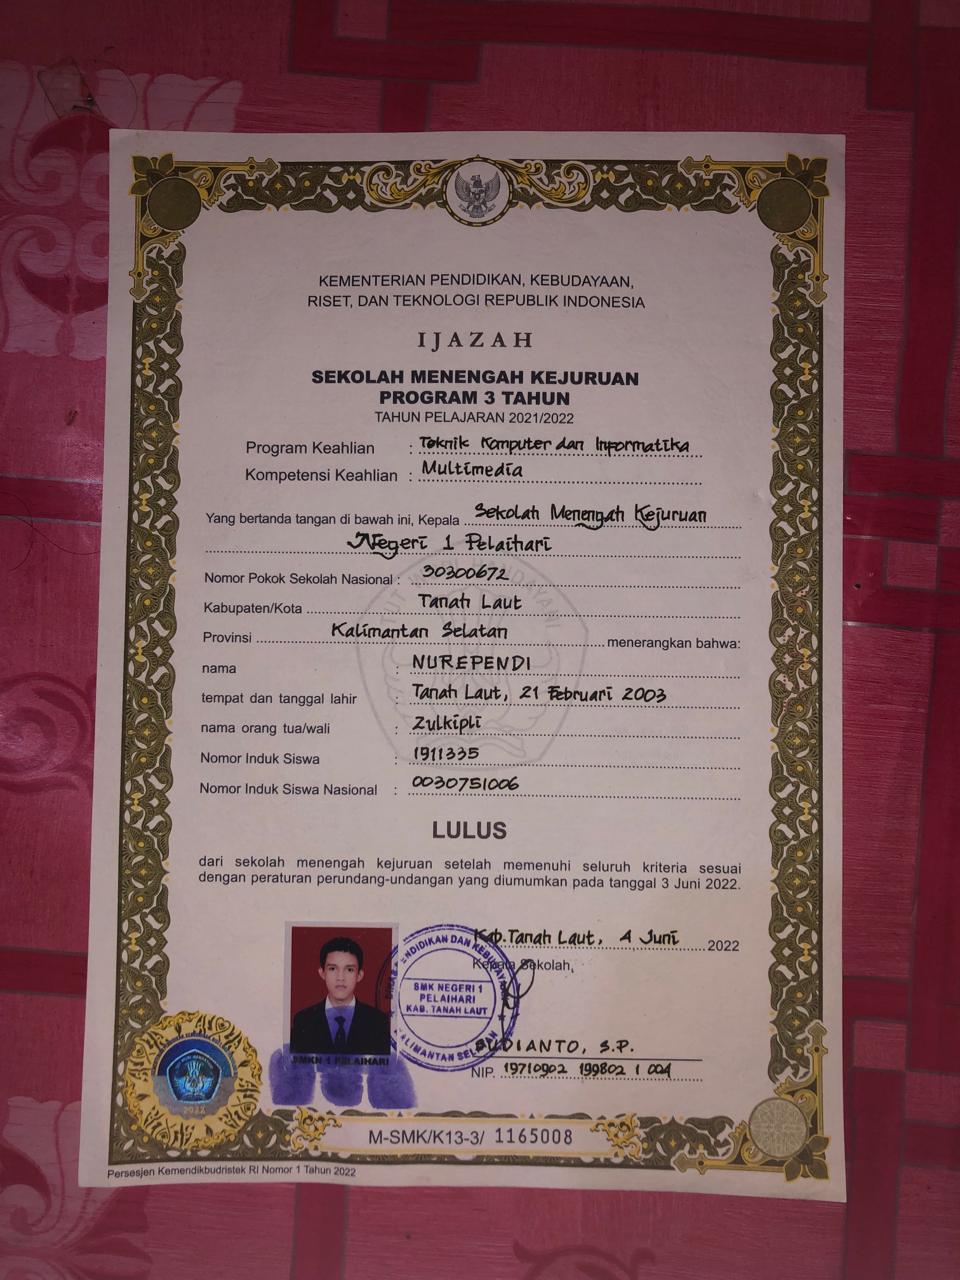 KEMENTERIAN PENDIDIKAN, KEBUDAYAAN,
RISET, DAN TEKNOLOGI REPUBLIK INDONESIA
IJAZAH
SEKOLAH MENENGAH KEJURUAN
PROGRAM 3 TAHUN
TAHUN PELAJARAN 2021/2022
Program Keahlian : Teknik Komputer dan Informatika
Kompetensi Keahlian : Multimedia
Yang bertanda tangan di bawah ini, Kepala Sekolah Menengah Kejuruan
Negeri 1 Pelaihari
Nomor Pokok Sekolah Nasional : 30300672
Kabupaten/Kota Tanah Laut
Provinsi Kalimantan Selatan menerangkan bahwa:
nama : NUREPENDI
tempat dan tanggal lahir : Tanah Laut, 21 Februari 2003
nama orang tua/wali : Zulkipli
Nomor Induk Siswa : 1911335
Nomor Induk Siswa Nasional : 0030751006
LULUS
dari sekolah menengah kejuruan setelah memenuhi seluruh kriteria sesuai
dengan peraturan perundang-undangan yang diumumkan pada tanggal 3 Juni 2022.
Kab. Tanah Laut, 4 Juni 2022
Kepala Sekolah,
PENDIDIKAN DAN KEBUDAYAAN
SMK NEGERI 1
PELAIHARI
KAB. TANAH LAUT
KALIMANTAN SELATAN
BUDIANTO, S.P.
NIP. 19710902 199802 1 004
SMKN 1 PELAIHARI
2022
M-SMK/K13-3/ 1165008
Persesjen Kemendikbudristek RI Nomor 1 Tahun 2022